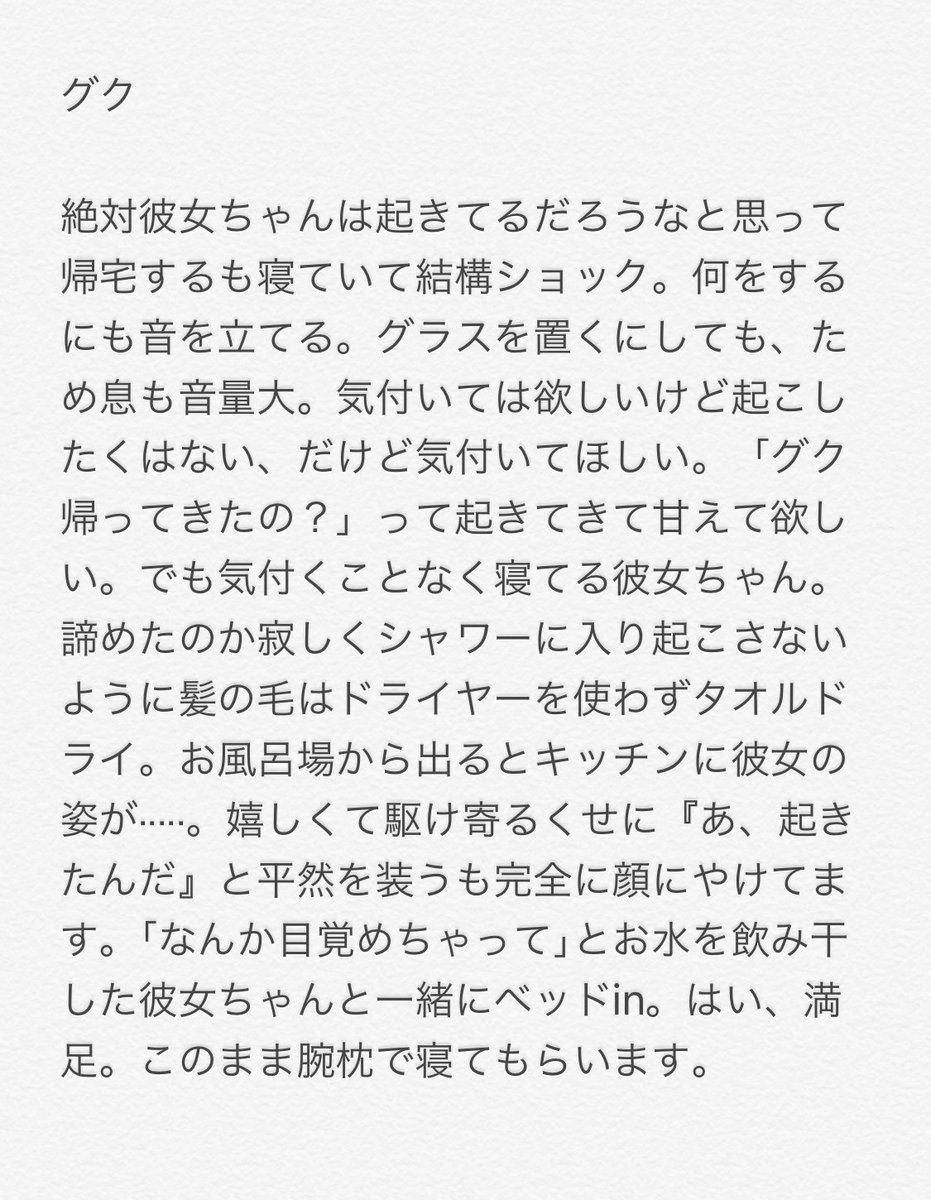 グク
絶対彼女ちゃんは起きてるだろうなと思って
帰宅するも寝ていて結構ショック。何をする
にも音を立てる。グラスを置くにしても、た
め息も音量大。気付いては欲しいけど起こし
たくはない、だけど気付いてほしい。「グク
帰ってきたの？」って起きてきて甘えて欲し
い。でも気付くことなく寝てる彼女ちゃん。
諦めたのか寂しくシャワーに入り起こさない
ように髪の毛はドライヤーを使わずタオルド
ライ。お風呂場から出るとキッチンに彼女の
姿が……。嬉しくて駆け寄るくせに『あ、起き
たんだ』と平然を装うも完全に顔にやけてま
す。「なんか目覚めちゃって」とお水を飲み干
した彼女ちゃんと一緒にベッドin。はい、満
足。このまま腕枕で寝てもらいます。